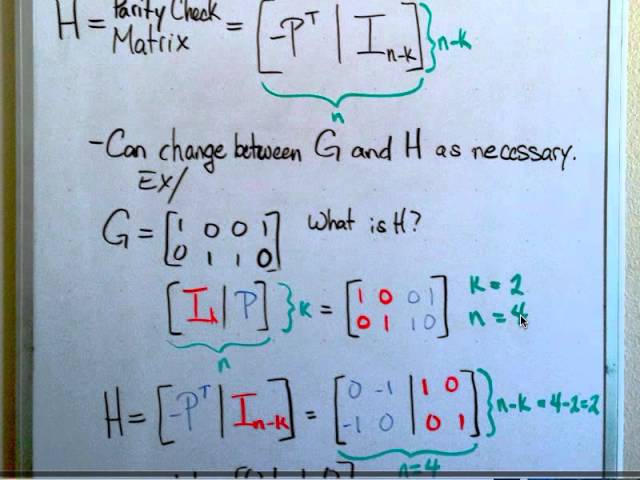 H = Parity Check Matrix = [-Pᵀ | Iₙ₋ₖ] } n-k
n
- Can change between G and H as necessary.
EX/
G = [1 0 0 1
0 1 1 0] What is H?
[Iₖ | P] } k = [1 0 0 1
0 1 1 0] k = 2
n = 4
n
H = [-Pᵀ | Iₙ₋ₖ] = [0 -1 | 1 0
-1 0 | 0 1] } n-k = 4-2=2
n=4